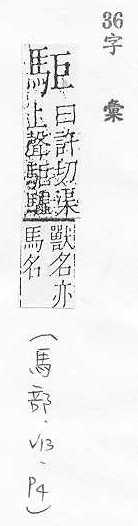 36
字彙
駏
曰許切渠
上聲駏驉
獸名亦
馬名
(馬部-V13-P4)